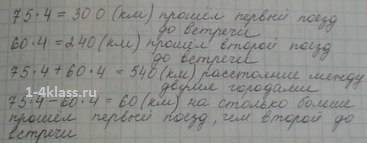 75·4 = 300 (км) прошел первый поезд
до встречи
60·4 = 240 (км) прошел второй поезд
до встречи
75·4+60·4 = 540 (км) расстояние между
двумя городами
75·4-60·4 = 60 (км) на столько больше
прошел первый поезд, чем второй до
встречи
1-4klass.ru